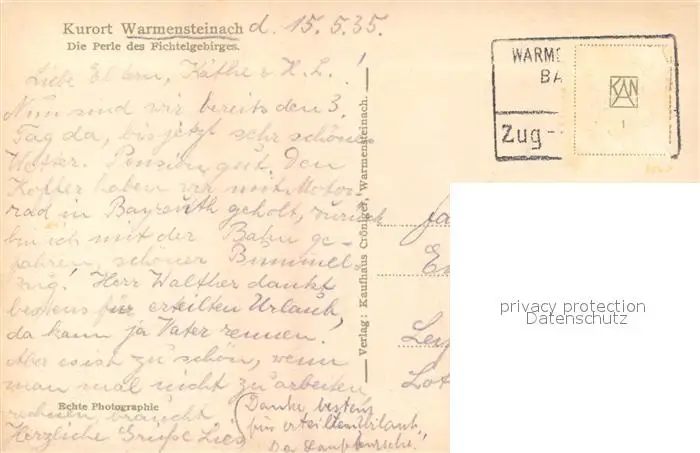 Kurort Warmensteinach d. 15.5.35.
Die Perle des Fichtelgebirges.
Liebe Eltern, Käthe & H. L.!
Nun sind wir bereits den 3.
Tag da, bis jetzt sehr schönes
Wetter. Pension gut. Den
Koffer haben wir mit Motor
rad in Bayreuth geholt, zurück
bin ich mit der Bahn ge-
fahren, schöner Bummel-
zug! Herr Walther dankt
bestens für erteilten Urlaub,
da kann ja Vater rennen.
Aber es ist zu schön, wenn
man mal nicht zu arbeiten
braucht
Echte Photographie
Herzliche Grüße Lies
(Danke bestens
für erteilten Urlaub,
Verlag: Kaufhaus Cröniger, Warmensteinach.
WARME
BA
Zug-
KAN
1
privacy protection
Datenschutz